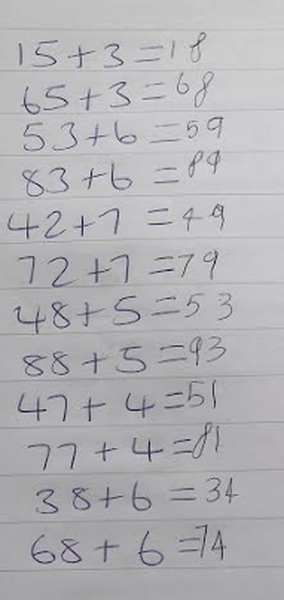 15+3=18
65+3=68
53+6=59
83+6=89
42+7=49
72+7=79
48+5=53
88+5=93
47+4=51
77+4=81
38+6=34
68+6=74